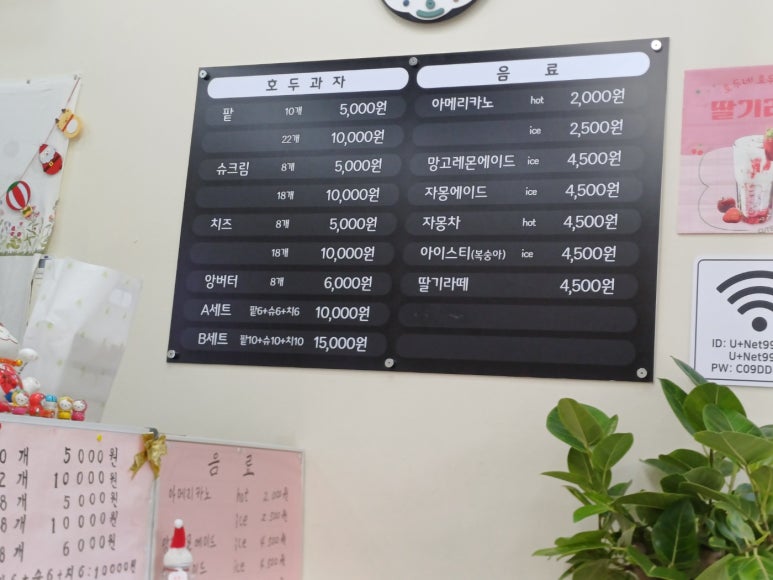 호두과자
팥 10개 5,000원
22개 10,000원
슈크림 8개 5,000원
18개 10,000원
치즈 8개 5,000원
18개 10,000원
앙버터 8개 6,000원
A세트 팥6+슈6+치6 10,000원
B세트 팥10+슈10+치10 15,000원
음료
아메리카노 hot 2,000원
ice 2,500원
망고레몬에이드 ice 4,500원
자몽에이드 ice 4,500원
자몽차 hot 4,500원
아이스티(복숭아) ice 4,500원
딸기라떼 4,500원
딸기라
ID: U+Net99
U+Net99
PW: C09DD
0개 5000원
2개 10000원
8개 5000원
8개 10000원
8개 6000원
6+슈6+치6:10000원
음료
아메리카노 hot 2,000원
ice 2,500원
에이드 ice 4,500원
이드 ice